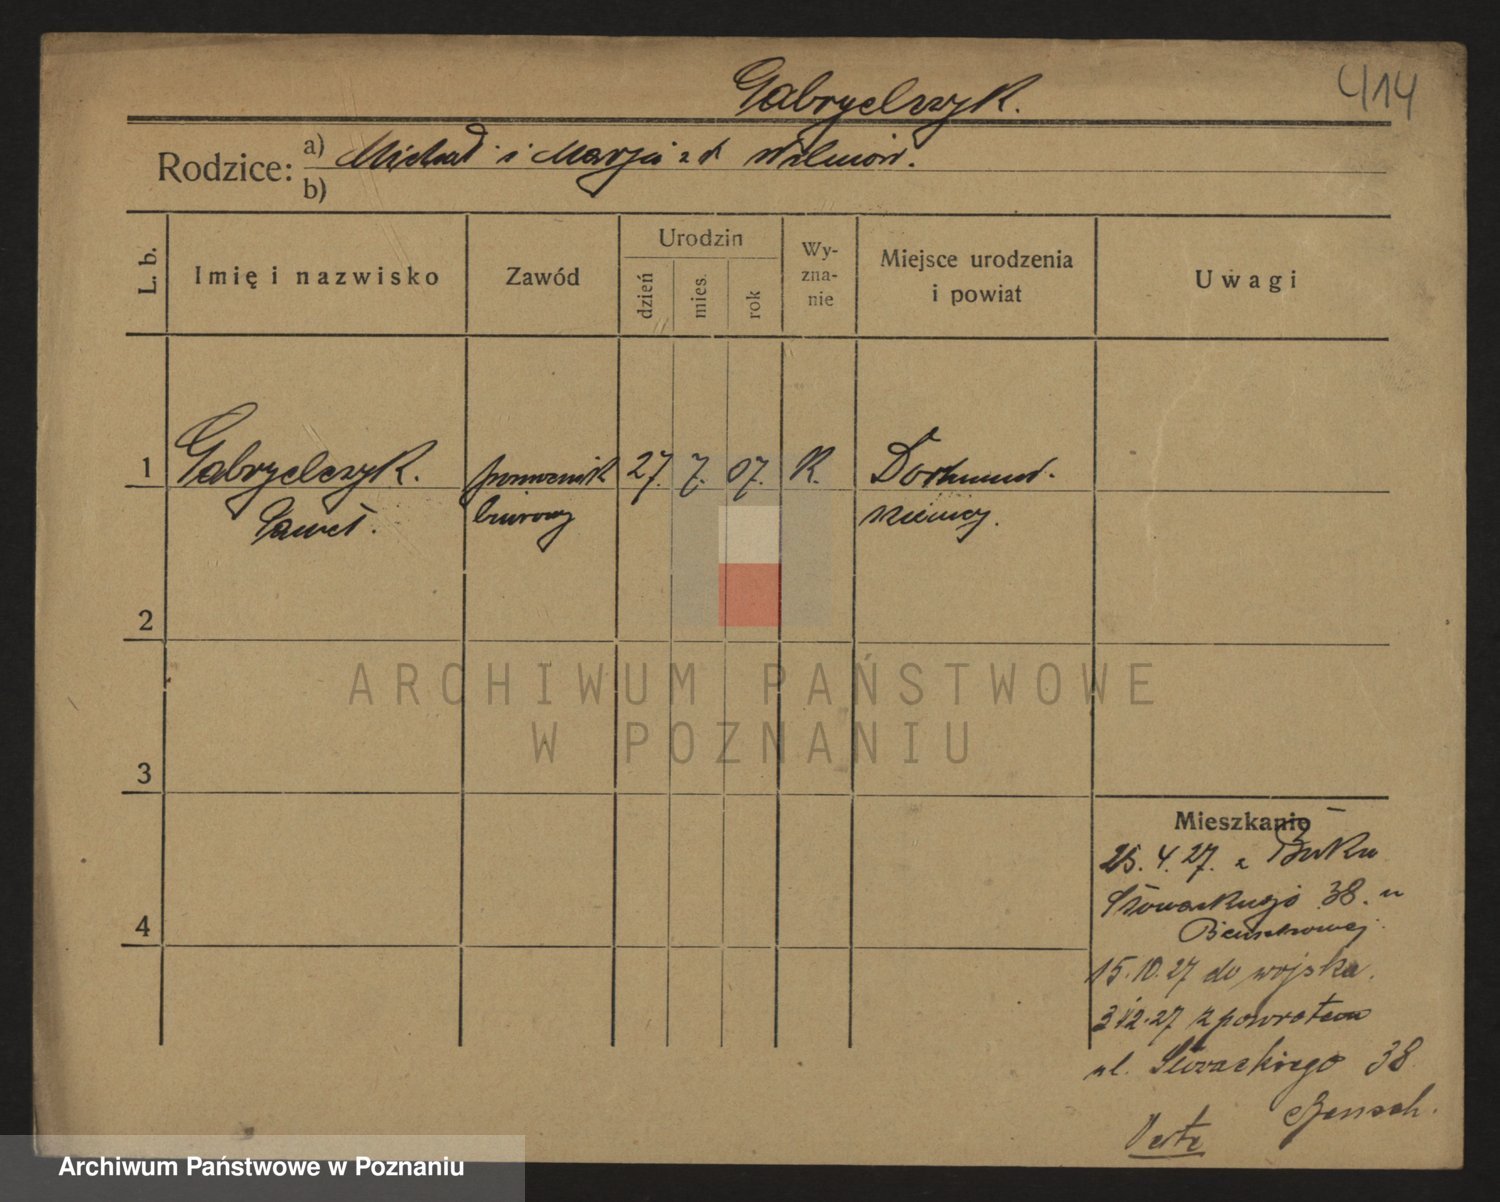 414
Gabryelczyk.
Rodzice: a) Michał i Marja z d
b)
L. b.
Imię i nazwisko
Zawód
Urodzin
dzień
mies.
rok
Wy-
zna-
nie
Miejsce urodzenia
i powiat
Uwagi
1 Gabryelczyk. pomocnik 27. 7. 07. K. Dortmund.
Paweł. biurowy Niemcy.
2
3
4
ARCHIWUM PAŃSTWOWE
W POZNANIU
Mieszkanie
25. 4. 27. z Buku
Słowackiego 38. u
15.10.27 do wojska.
31/12.27 z powrotem
ul. Słowackiego 38
Verte
Archiwum Państwowe w Poznaniu